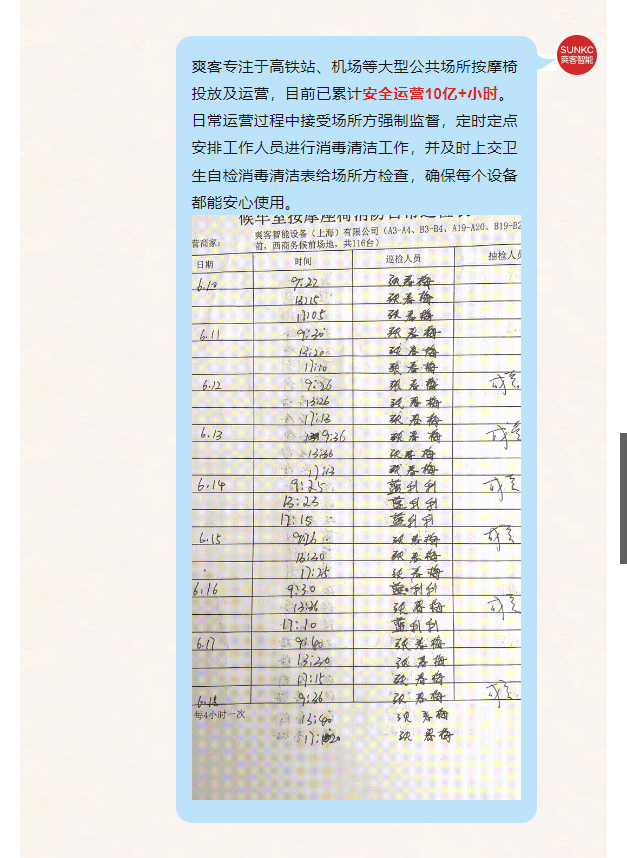 SUNKC
爽客智能
爽客专注于高铁站、机场等大型公共场所按摩椅
投放及运营，目前已累计安全运营10亿+小时。
日常运营过程中接受场所方强制监督，定时定点
安排工作人员进行消毒清洁工作，并及时上交卫
生自检消毒清洁表给场所方检查，确保每个设备
都能安心使用。
候车室按摩座椅消防日常巡检表
爽客智能设备（上海）有限公司（A3-A4、B3-B4、A19-A20、B19-B2
营商家：
前，西商务候前场地，共116台）
日期 时间 巡检人员 抽检人员
6.10 9:22 张春梅
13:15 张春梅
17:05 张春梅
6.11 9:30 张春梅
13:20 张春梅
17:10 张春梅
6.12 9:26 张春梅
13:26 张春梅
17:13 张春梅
6.13 9:36 张春梅
13:36 张春梅
17:13 张春梅
6.14 9:25 蓝利利
13:23 蓝利利
17:15 蓝利利
6.15 张春梅
13:20 张春梅
17:25 张春梅
6.16 9:30 蓝利利
13:36 张春梅
17:10 蓝利利
6.17 9:40 张春梅
13:20 张春梅
17:15 张春梅
6.18 9:36 张春梅
每4小时一次 13:40 张春梅
张春梅